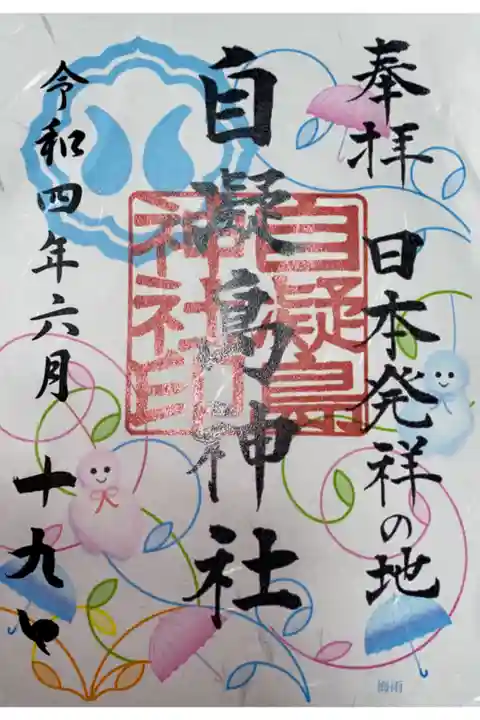 奉拝 日本発祥の地
自凝島神社
自凝島
神社印
令和四年六月 十九日
梅雨